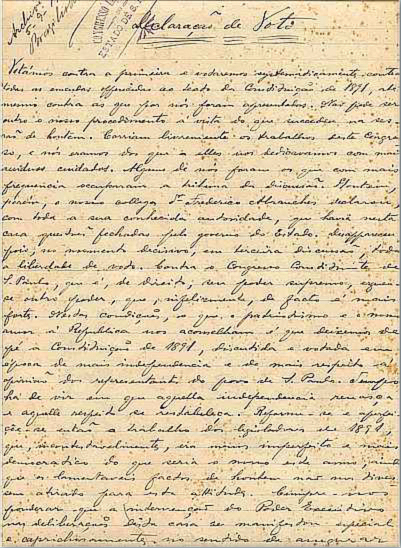 Declaração de Voto
Votámos contra a primeira e votaremos systematicamente contra
todas as emendas offerecidas ao texto da Constituição de 1891, até
mesmo contra as que por nós foram apresentadas. Não póde ser
outro o nosso procedimento á vista do que succedeu na ses-
são de hontem. Corriam livremente os trabalhos deste Congres-
so, e nós eramos dos que a elles nos dedicavamos com mais
cuidados. Alguns de nós foram os que com mais
frequencia occuparam a tribuna da discussão. Hontem,
porém, o nosso collega Dr. Frederico Abranches declarou,
com toda a sua conhecida autoridade, que havia nesta
casa questões fechadas pelo governo do Estado. Desappareceu
pois, no momento decisivo, em terceira discussão, toda
a liberdade de voto. Contra o Congresso Constituinte de
S. Paulo, que é, de direito, um poder supremo, ergueu-
se outro poder, que, infelizmente, de facto é mais
forte. Nestas condições, o que o patriotismo e o nosso
amor á Republica nos aconselham é que deixemos de
pé a Constituição de 1891, discutida e votada em
época de mais independencia e de mais respeito á
opinião dos representantes do povo de S. Paulo. Tempo
ha de vir em que aquella independencia renasça
e aquelle respeito se restabeleça. Reforme-se e aperfei-
çôe-se então o trabalho dos legisladores de 1891,
que, incontestavelmente, era menos imperfeito e mais
democratico do que seria o nosso este anno, ainda
que os lamentaveis factos de hontem não nos tives-
sem atirado para esta attitude. Cumpre-nos
ponderar que a intervenção do Poder Executivo
nas deliberações desta casa se manifestou especial
e caprichosamente no sentido de